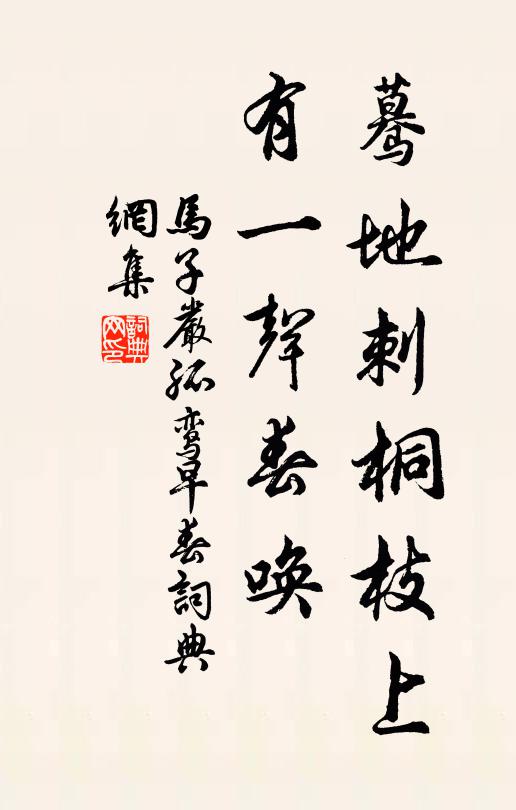 蓦地刺桐枝上
有一聲春喚
馬子嚴孤鸾早春詞典
網集
詞典
网印